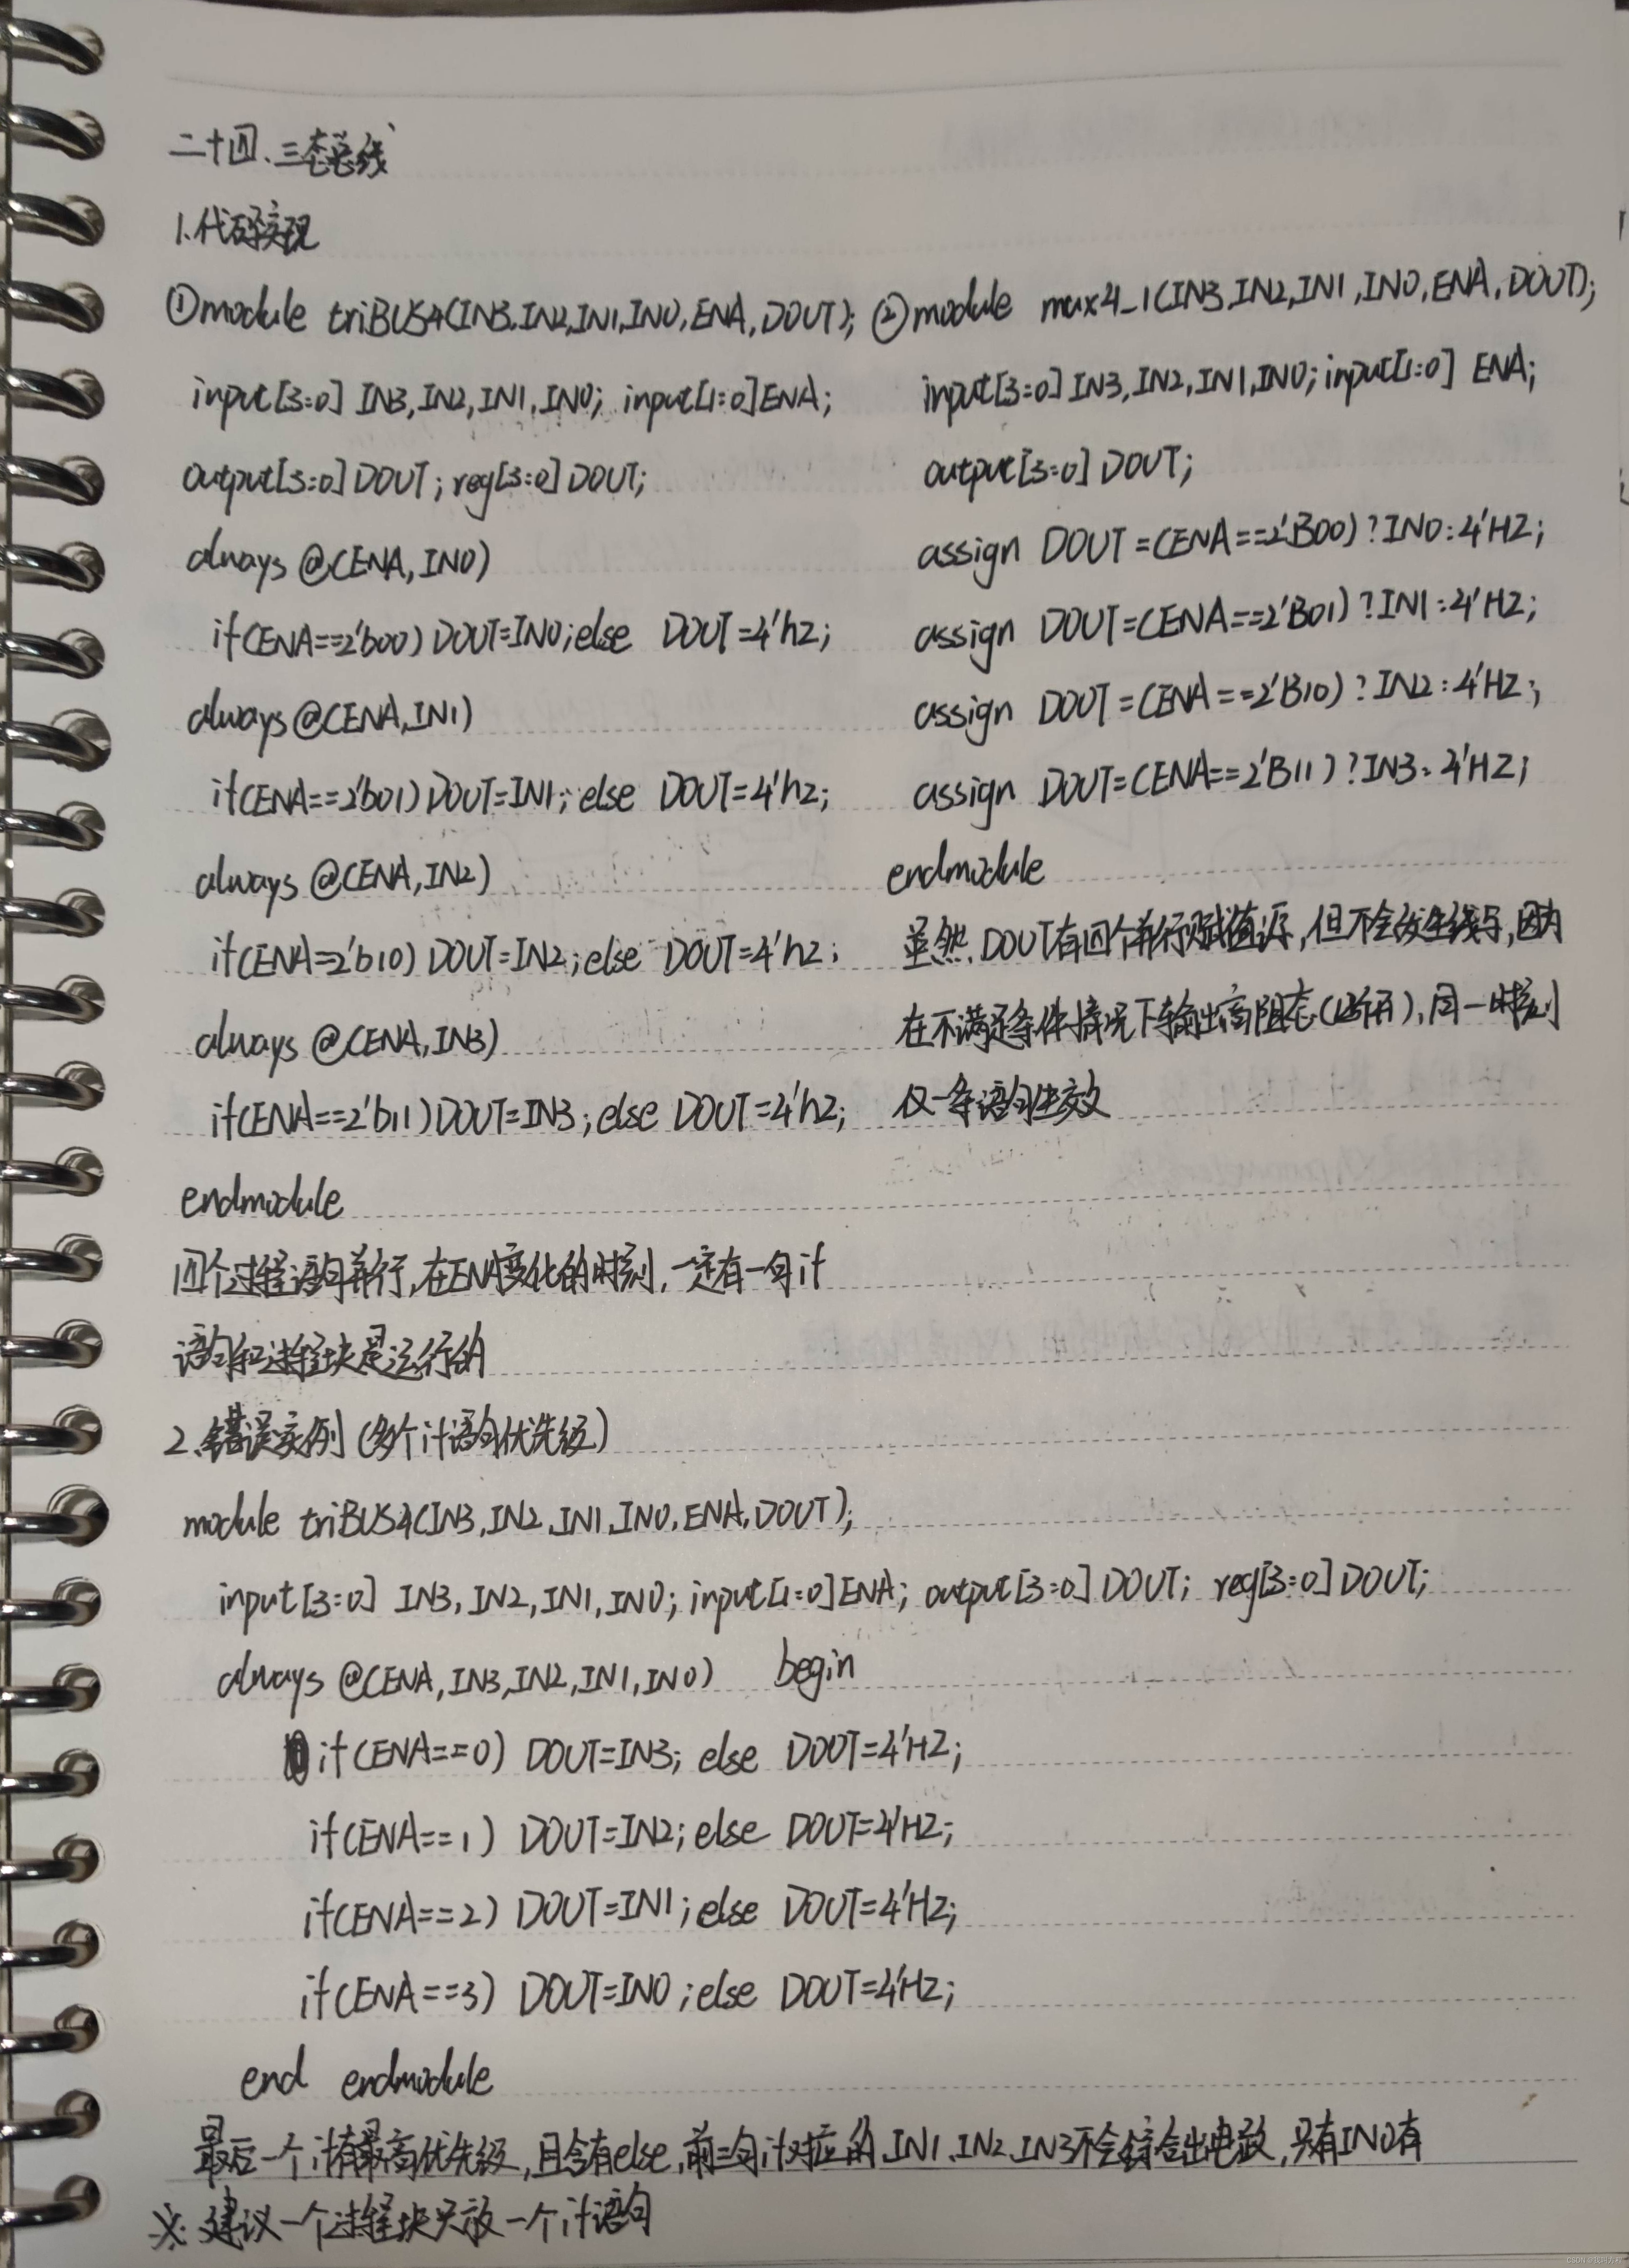 二十四、三态总线
1.代码实现
①module triBUS4(IN3,IN2,IN1,IN0,ENA,DOUT);
input[3:0] IN3,IN2,IN1,IN0; input[1:0]ENA;
output[3:0]DOUT; reg[3:0]DOUT;
always @(ENA,IN0)
if(ENA==2'b00) DOUT=IN0;else DOUT=4'hz;
always @(ENA,IN1)
if(ENA==2'b01) DOUT=IN1;else DOUT=4'hz;
always @(ENA,IN2)
if(ENA=2'b10) DOUT=IN2;else DOUT=4'hz;
always @(ENA,IN3)
if(ENA==2'b11)DOUT=IN3;else DOUT=4'hz;
endmodule
四个过程语句并行,在ENA变化的时刻,一定有一句if
语句和过程块是运行的
②module mux4_1(IN3,IN2,IN1,IN0,ENA,DOUT);
input[3:0]IN3,IN2,IN1,IN0;input[1:0] ENA;
output[3:0] DOUT;
assign DOUT=(ENA==2'B00)?IN0:4'HZ;
assign DOUT=(ENA==2'B01)?IN1:4'HZ;
assign DOUT=(ENA==2'B10)?IN2:4'HZ;
assign DOUT=(ENA==2'B11)?IN3:4'HZ;
endmodule
虽然DOUT有四个并行赋值源,但不会发生线与,因为
在不满足条件情况下输出高阻态(断开),同一时刻
仅一条语句生效
2.错误实例(多个if语句优先级)
module triBUS4(IN3,IN2,IN1,IN0,ENA,DOUT);
input[3:0] IN3,IN2,IN1,IN0; input[1:0]ENA; output[3:0]DOUT; reg[3:0]DOUT;
always @(ENA,IN3,IN2,IN1,IN0) begin
if(ENA==0) DOUT=IN3; else DOUT=4'HZ;
if(ENA==1) DOUT=IN2;else DOUT=4'HZ;
if(ENA==2) DOUT=IN1;else DOUT=4'HZ;
if(ENA==3) DOUT=IN0;else DOUT=4'HZ;
end endmodule
最后一个if有最高优先级,且含有else,前三句if对应的IN1、IN2、IN3不会综合出电路,只有IN0有
※ 建议一个过程块只放一个if语句